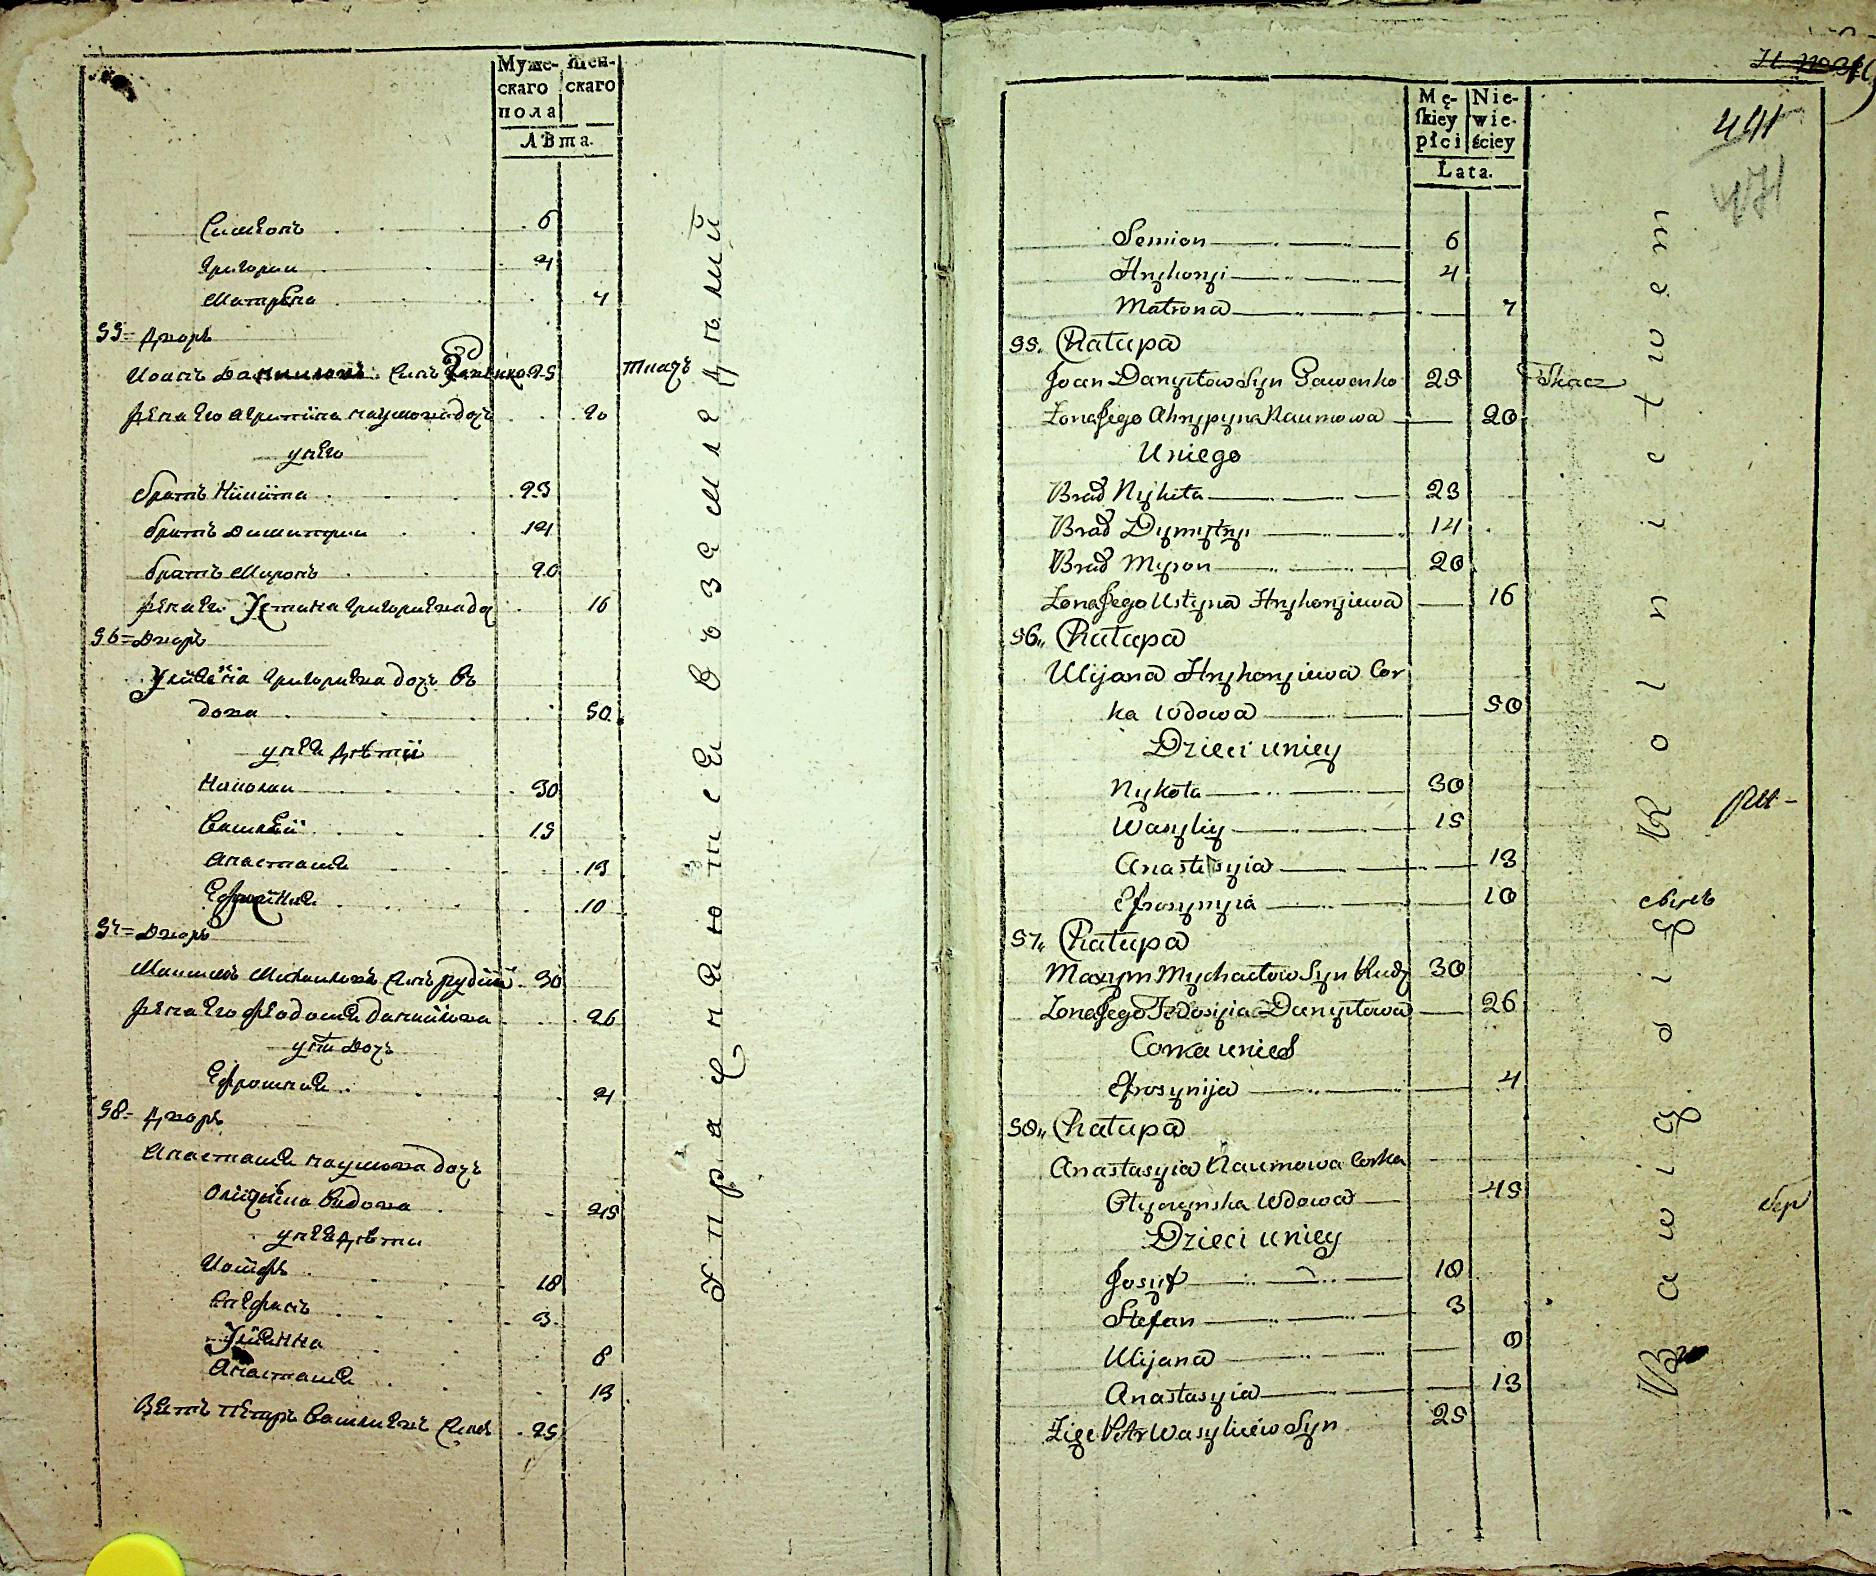 Муже-
скаго
пола
Жен-
скаго
Лѣта.
Симеонъ 6
Григории 4
Матрѣна 7
55= Дворъ
Иоанъ Даниловъ Синъ 25 Ткачъ
Жена Его Агрипина Наумовадочъ 20
унЕго
братъ Никита 23
братъ Димитрии 14
братъ Миронъ 20
Жена Ег Устина Григориевнадо 16
56= Дворъ
Улияна Григориевна дочъ въ
дова 50
унея Дѣти
Николаи 30
Василий 15
Анастасия 13
Ефросиния 10
57= Дворъ
Максимъ Михаиловъ Синъ рудий 30
Жена Его Феодосия Данилова 26
уни Дочъ
Ефросиния 4
58= Дворъ
Анастасия Наумова дочъ
Вдова 45
унея Дѣти
Иосифъ 10
Стефанъ 3
Улиянна 8
Анастасия 13
Зять Петръ Василиевъ Синъ 25
Упражняются въ земледѣлий
441
471
Mę-
skiey
płci
Nie-
wie-
ściey
Lata.
Semion 6
Hryhoryi 4
Matrona 7
55. Chałupa
Joan Danyłow Syn Pawenko 25 Tkacz
Zona Jego Ahrypyna Naumowa 20
Uniego
Brad Nykita 23
Brad Dymytryi 14
Brad Myron 20
Zona Jego Ustyna Hryhoryiewa 16
56„ Chałupa
Ulijana Hryhoryiewa Cor
ka Wdowa 50
Dzieci uniey
Nykoła 30
Wasyliy 15
Anastasyia 13
Efrosynyia 10
57„ Chałupa
Maxym Mychaełow Syn Rudy 30
Zona Jego Fedosyia Danyłowa 26
Corka unied
Efrosynija 4
58„ Chałupa
Anastasyia Naumowa Corka
Ołyczynska Wdowa 45
Dzieci uniey
Josyf 10
Stefan 3
Ulijana 8
Anastasyia 13
Zięc Petr Wasyliew Syn 25
Bawią się Rolnictwem